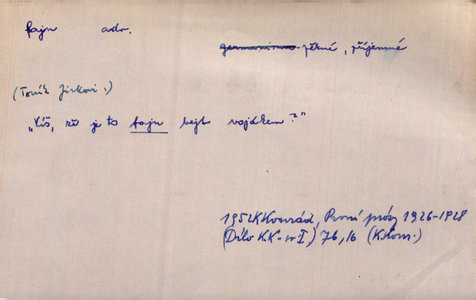 fajn adv.
germanismus pěkně, příjemně
(Toník Jirkovi:)
„Víš, že je to fajn bejt vojákem?"
1952 KKonrád, První prózy 1926-1928
(Dílo KK- sv I,) 76,16 (KHom.)